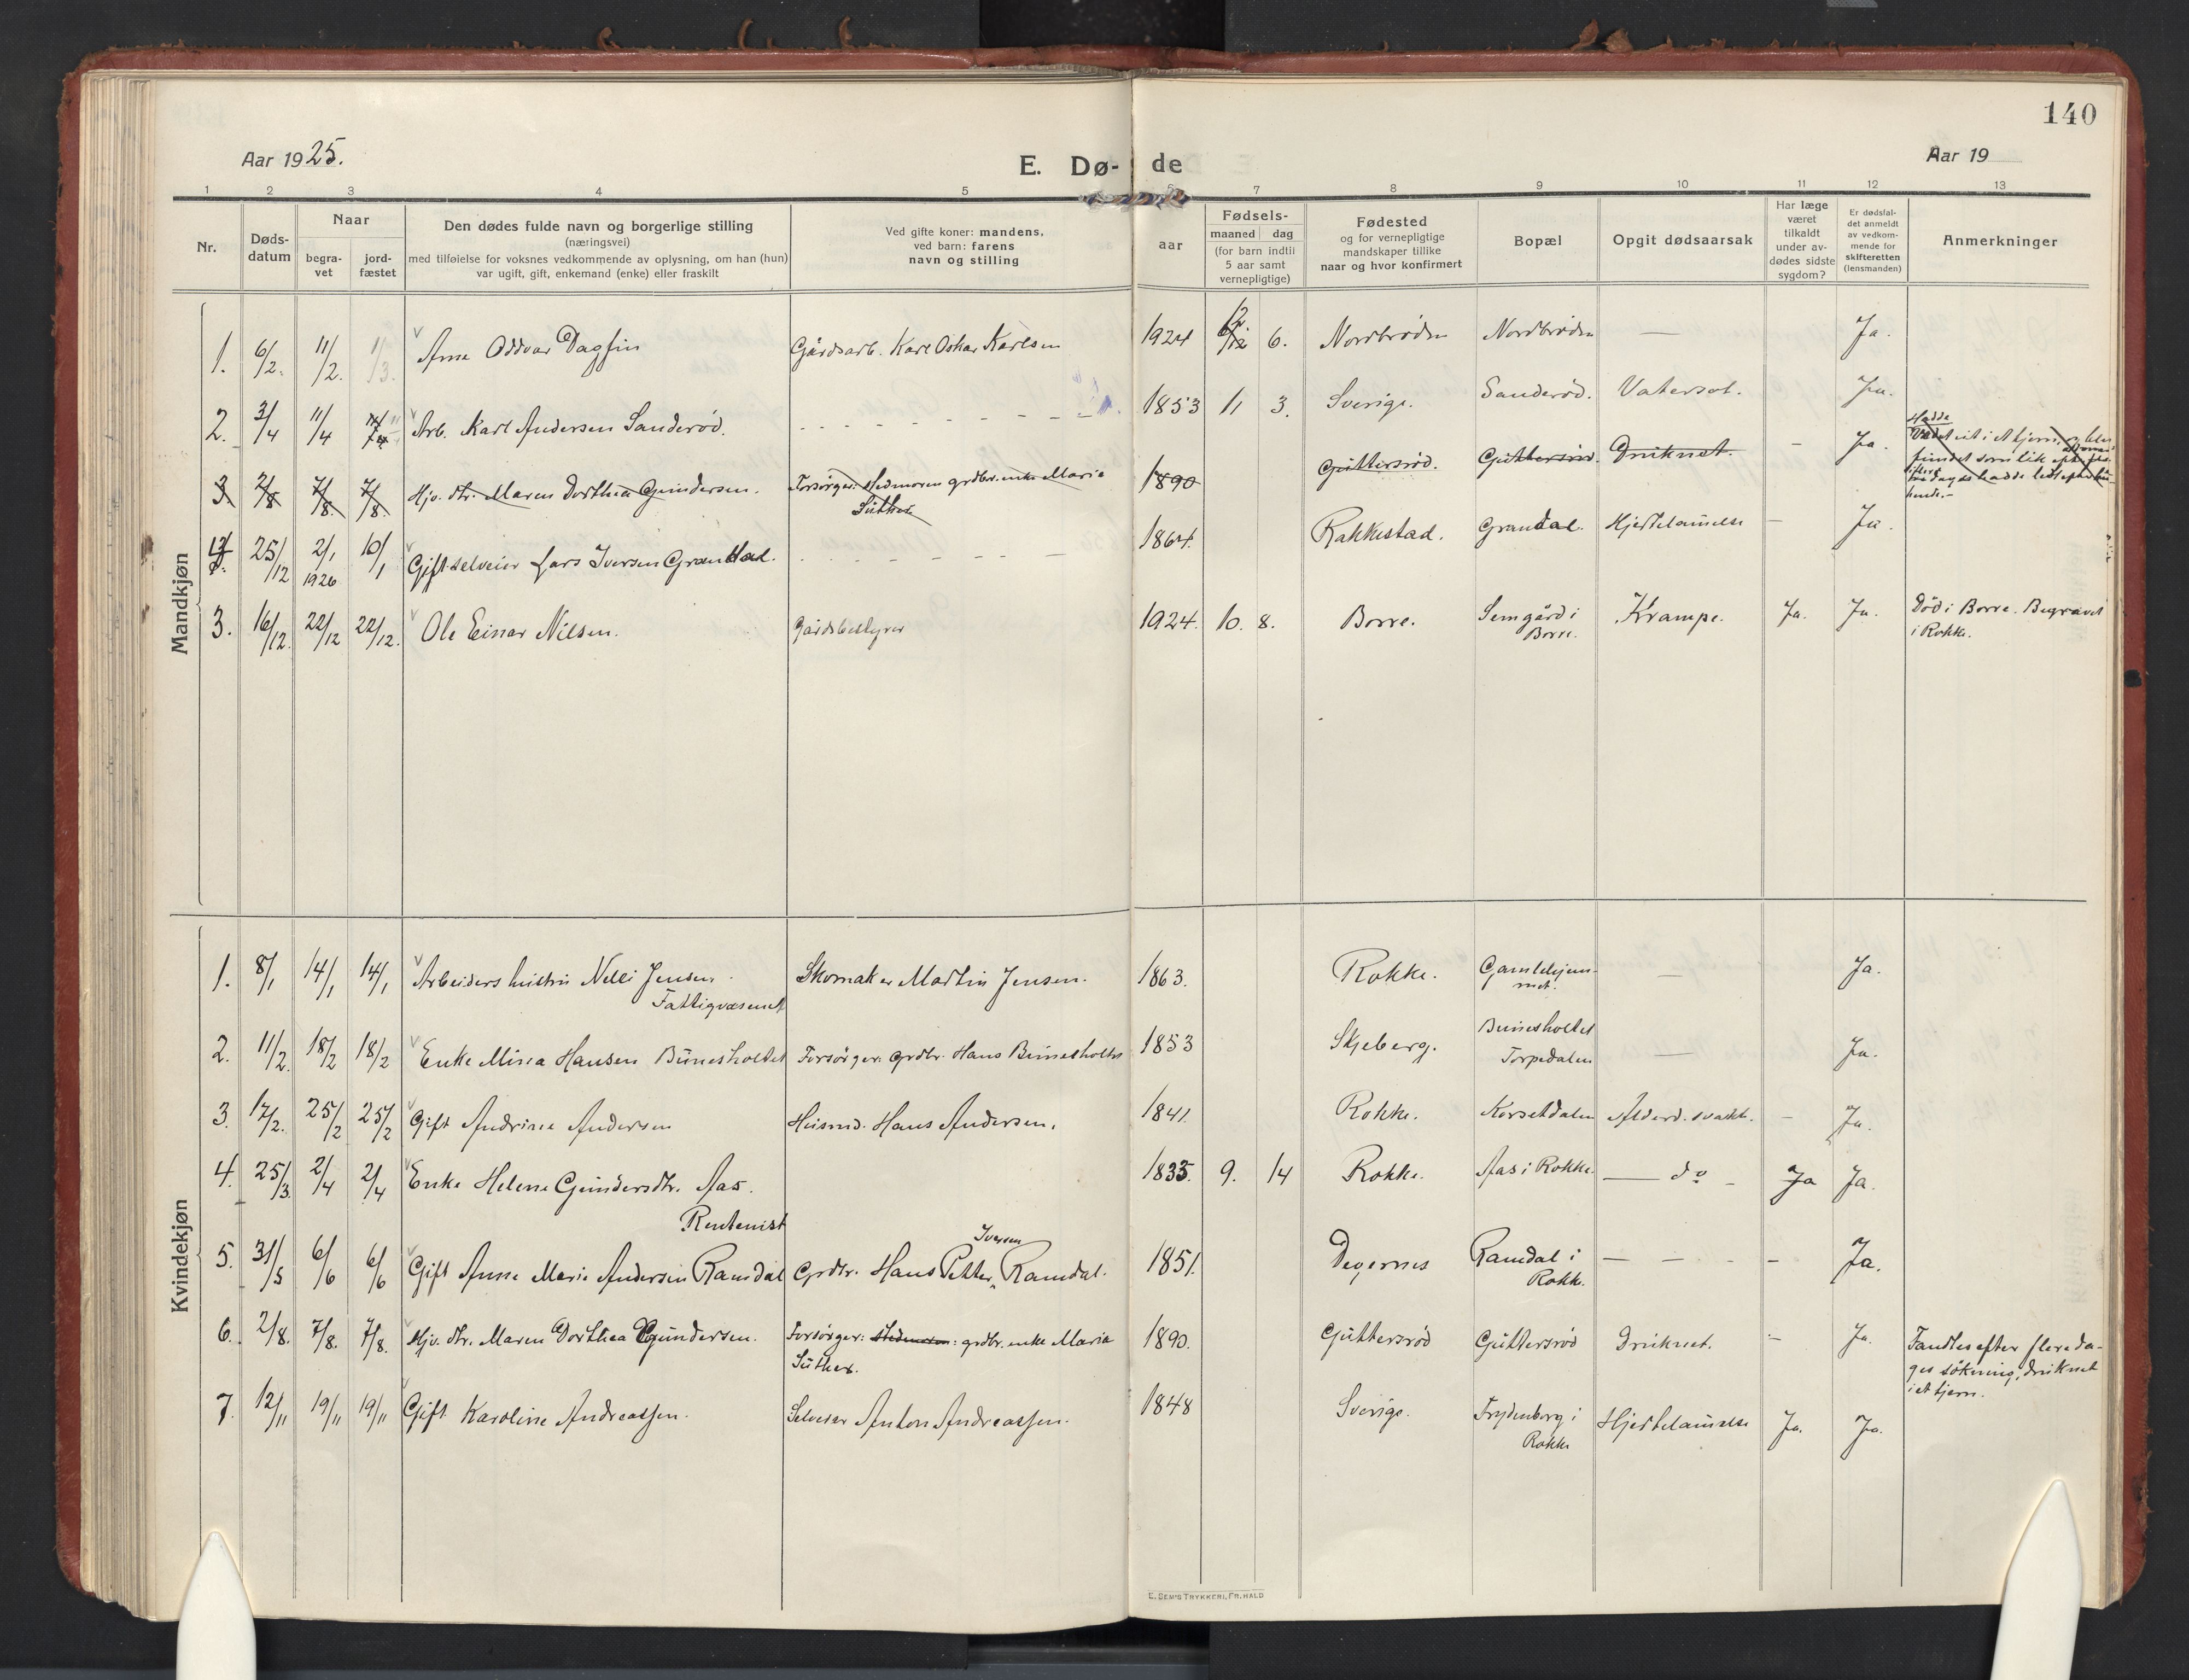 140
Aar 1925.
E. Dø- de
Aar 19
1 2 3 4 5 6 7 8 9 10 11 12 13
Nr.
Døds-
datum
Naar
begra-
vet
jord-
fæstet
Den dødes fulde navn og borgerlige stilling
(næringsvei)
med tilføielse for voksnes vedkommende av oplysning, om han (hun)
var ugift, gift, enkemand (enke) eller fraskilt
Ved gifte koner: mandens,
ved barn: farens
navn og stilling
aar
Fødsels-
maaned dag
(for barn indtil
5 aar samt
vernepligtige)
Fødested
og for vernepligtige
mandskaper tillike
naar og hvor konfirmert
Bopæl
Opgit dødsaarsak
Har læge
været
tilkaldt
under av-
dødes sidste
sygdom?
Er dødsfal-
det anmeldt
av vedkom-
mende for
skifteretten
(lensmanden)
Anmerkninger
Mandkjøn
1. 6/2. 11/2. 1/3. Arne Oddvar Dagfin Gårdsarb. Karl Oskar Karlsen 1924 12 6. Nordbrøden Nordbrøden — Ja.
2. 3/4 11/4 11/4 Arb. Karl Andersen Sanderød. - - - 1853 11 3. Sverige. Sanderød. Vatersot. Ja.
3. 2/8 7/8. 7/8. Hjv. dtr. Maren Dorthea Gundersen. Forsørger: Stedmoren grdbr. enke Maria
Suther 1890 Guttersrød. Guttersrød. Druknet. - Ja.
Hadde
hende.-
25/12 2/1 1926 10/1 Gift selveier Lars Iversen Grandal. - - - 1864. Rakkestad. Grandal. Hjertelammelse - Ja.
3. 16/12. 22/12 22/12. Ole Einar Nilsen. Gårdsbestyrer 1924. 10. 8. Borre. Semgård i
Borre. Krampe. Ja. Ja. Død i Borre. Begravet
i Rokke.
Kvindekjøn
1. 8/1 14/1 14/1 Arbeiders hustru Nelli Jensen.
Fattigvæsenet Skomaker Martin Jensen. 1863. Rokke. Gamlehjem-
met. — Ja.
2. 11/2. 18/2 18/2 Enke Mina Hansen Bunesholtet Forsörger: grdbr. Hans Bunesholtet 1853 Skjeberg. Bunesholtet
Torpedalen — Ja.
3. 17/2. 25/2 25/2 Gift Andrine Andersen Husmd. Hans Andersen. 1841. Rokke. Korsetdalen Alderd. svakh. - Ja.
4. 25/3 2/4 2/4 Enke Helene Gundersdtr. Aas. 1835. 9. 14 Rokke. Aas i Rokke — do - Ja Ja.
Rentenist
5. 31/5 6/6 6/6 Gift Anne Marie Andersen Ramdal Grdbr. Hans Petter Iversen Ramdal. 1851. Degernes Ramdal i
Rokk. — - - - Ja.
6. 2/8. 7/8. 7/8. Hjv. dtr. Maren Dorthea Gundersen. Forsörger: Stedmoren: grdbr. enke Maria
Suther. 1890. Guttersrød Guttersrød Druknet. - Ja. Fandtes efter flere da-
ges sökning, druknet
i et tjern.
7. 12/11 19/11 19/11 Gift Karoline Andreassen. Selveier Anton Andreassen. 1848 Sverige. Frydenborg i
Rokke Hjertelammelse Ja. Ja.
E. SEM'S TRYKKERI, FR.HALD